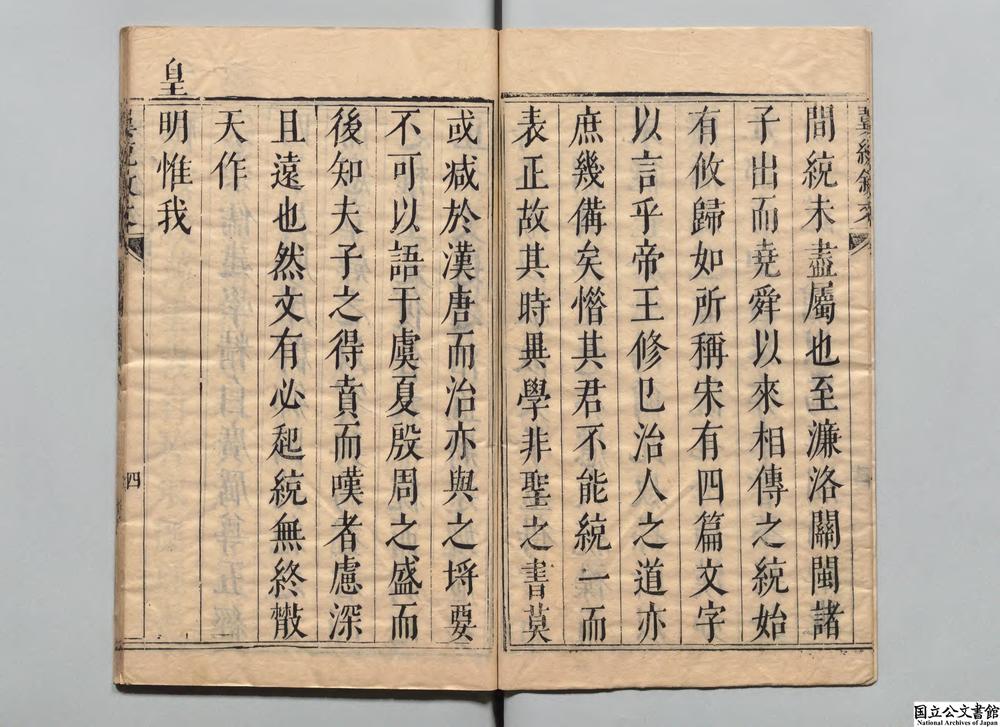 間統未盡屬也至濂洛關閩諸
子出而堯舜以來相傳之統始
有攸歸如所稱宋有四篇文字
以言乎帝王修巳治人之道亦
庶幾備矣惜其君不能統一而
表正故其時異學非聖之書莫
或减於漢唐而治亦與之埓要
不可以語于虞夏殷周之盛而
後知夫子之得賁而嘆者慮深
且遠也然文有必起統無終㪚
天作
皇
明惟我
四
国立公文書館
National Archives of Japan